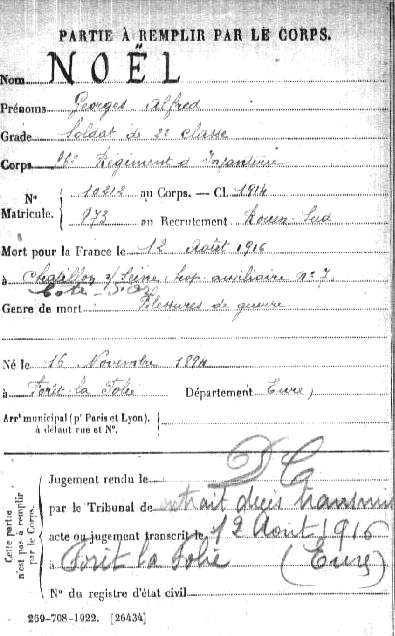 PARTIE À REMPLIR PAR LE CORPS.
Nom NOËL
Prénoms Georges Alfred
Grade Soldat de 2e classe
Corps Régiment d'Infanterie
N° Matricule. 10212 au Corps. — Cl. 1914
973 au Recrutement Rouen Sud
Mort pour la France le 12 Août 1916
à Chatillon s/ Seine, hop. auxiliaire n° 7
Côte d'Or
Genre de mort Blessures de guerre
Né le 16 Novembre 1894
à Forêt la Folie Département Eure
Arrt municipal (pr Paris et Lyon),
à défaut rue et N°.
Cette partie
n'est pas à remplir
par le Corps.
Jugement rendu le
par le Tribunal de extrait décès transmis
acte ou jugement transcrit le 12 Aout 1916
à Forêt la Folie (Eure)
N° du registre d'état civil
259-708-1922. [26434]